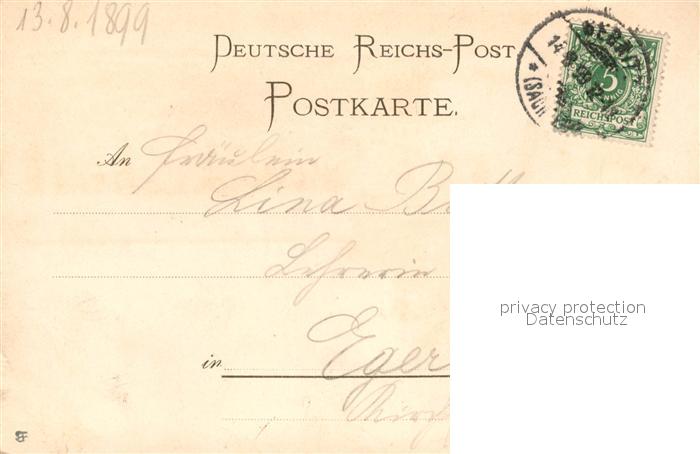 13.8.1899
Deutsche Reichs-Post
Postkarte.
5
PFENNIG
REICHSPOST
An Fräulein
Lina
Lehrerin
in Eger
privacy protection
Datenschutz